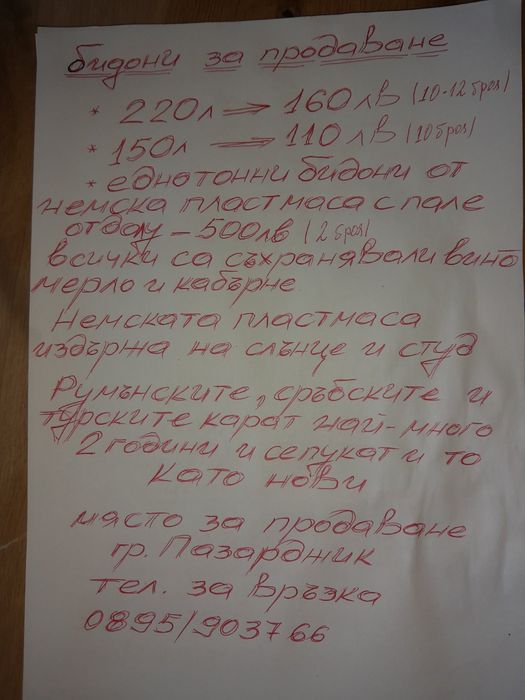 бидони за продаване
* 220л => 160лв (10-12броя)
* 150л => 110 лв (10броя)
* еднотонни бидони от
немска пластмаса с пале
отдолу - 500лв (2 броя)
всички са съхранявали вино
мерло и кабърне
Немската пластмаса
издържа на слънце и студ
Румънските, сръбските и
турските карат най-много
2 години и сепукат и то
като нови
място за продаване
гр. Пазарджик
тел. за връзка
0895/903766